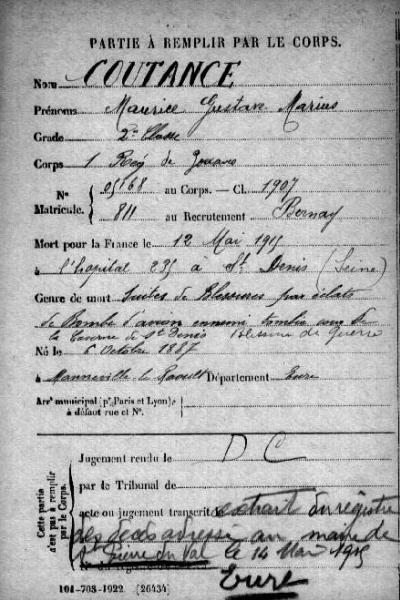 PARTIE À REMPLIR PAR LE CORPS.
Nom COUTANCE
Prénoms Maurice Gustave Marius
Grade 2e Classe
Corps 1 Reg de Zouaves
No Matricule. { 05168 au Corps. — Cl. 1907
811 au Recrutement Bernay
Mort pour la France le 12 Mai 1915
à l'hopital 235 à St Denis (Seine)
Genre de mort Suites de Blessures par éclats
de Bombe d'avion ennemi tombée sur
la Caserne de St Denis Blessure de Guerre
Né le 6 Octobre 1887
à Manneville la Raoult Département Eure
Arrt municipal (pr Paris et Lyon), à défaut rue et No.
Cette partie n'est pas à remplir par le Corps.
Jugement rendu le D C
par le Tribunal de
acte ou jugement transcrit le extrait du registre
des décès adressé au maire de
St Pierre du Val le 14 Mai 1915
Eure
101-708-1922. (26434)